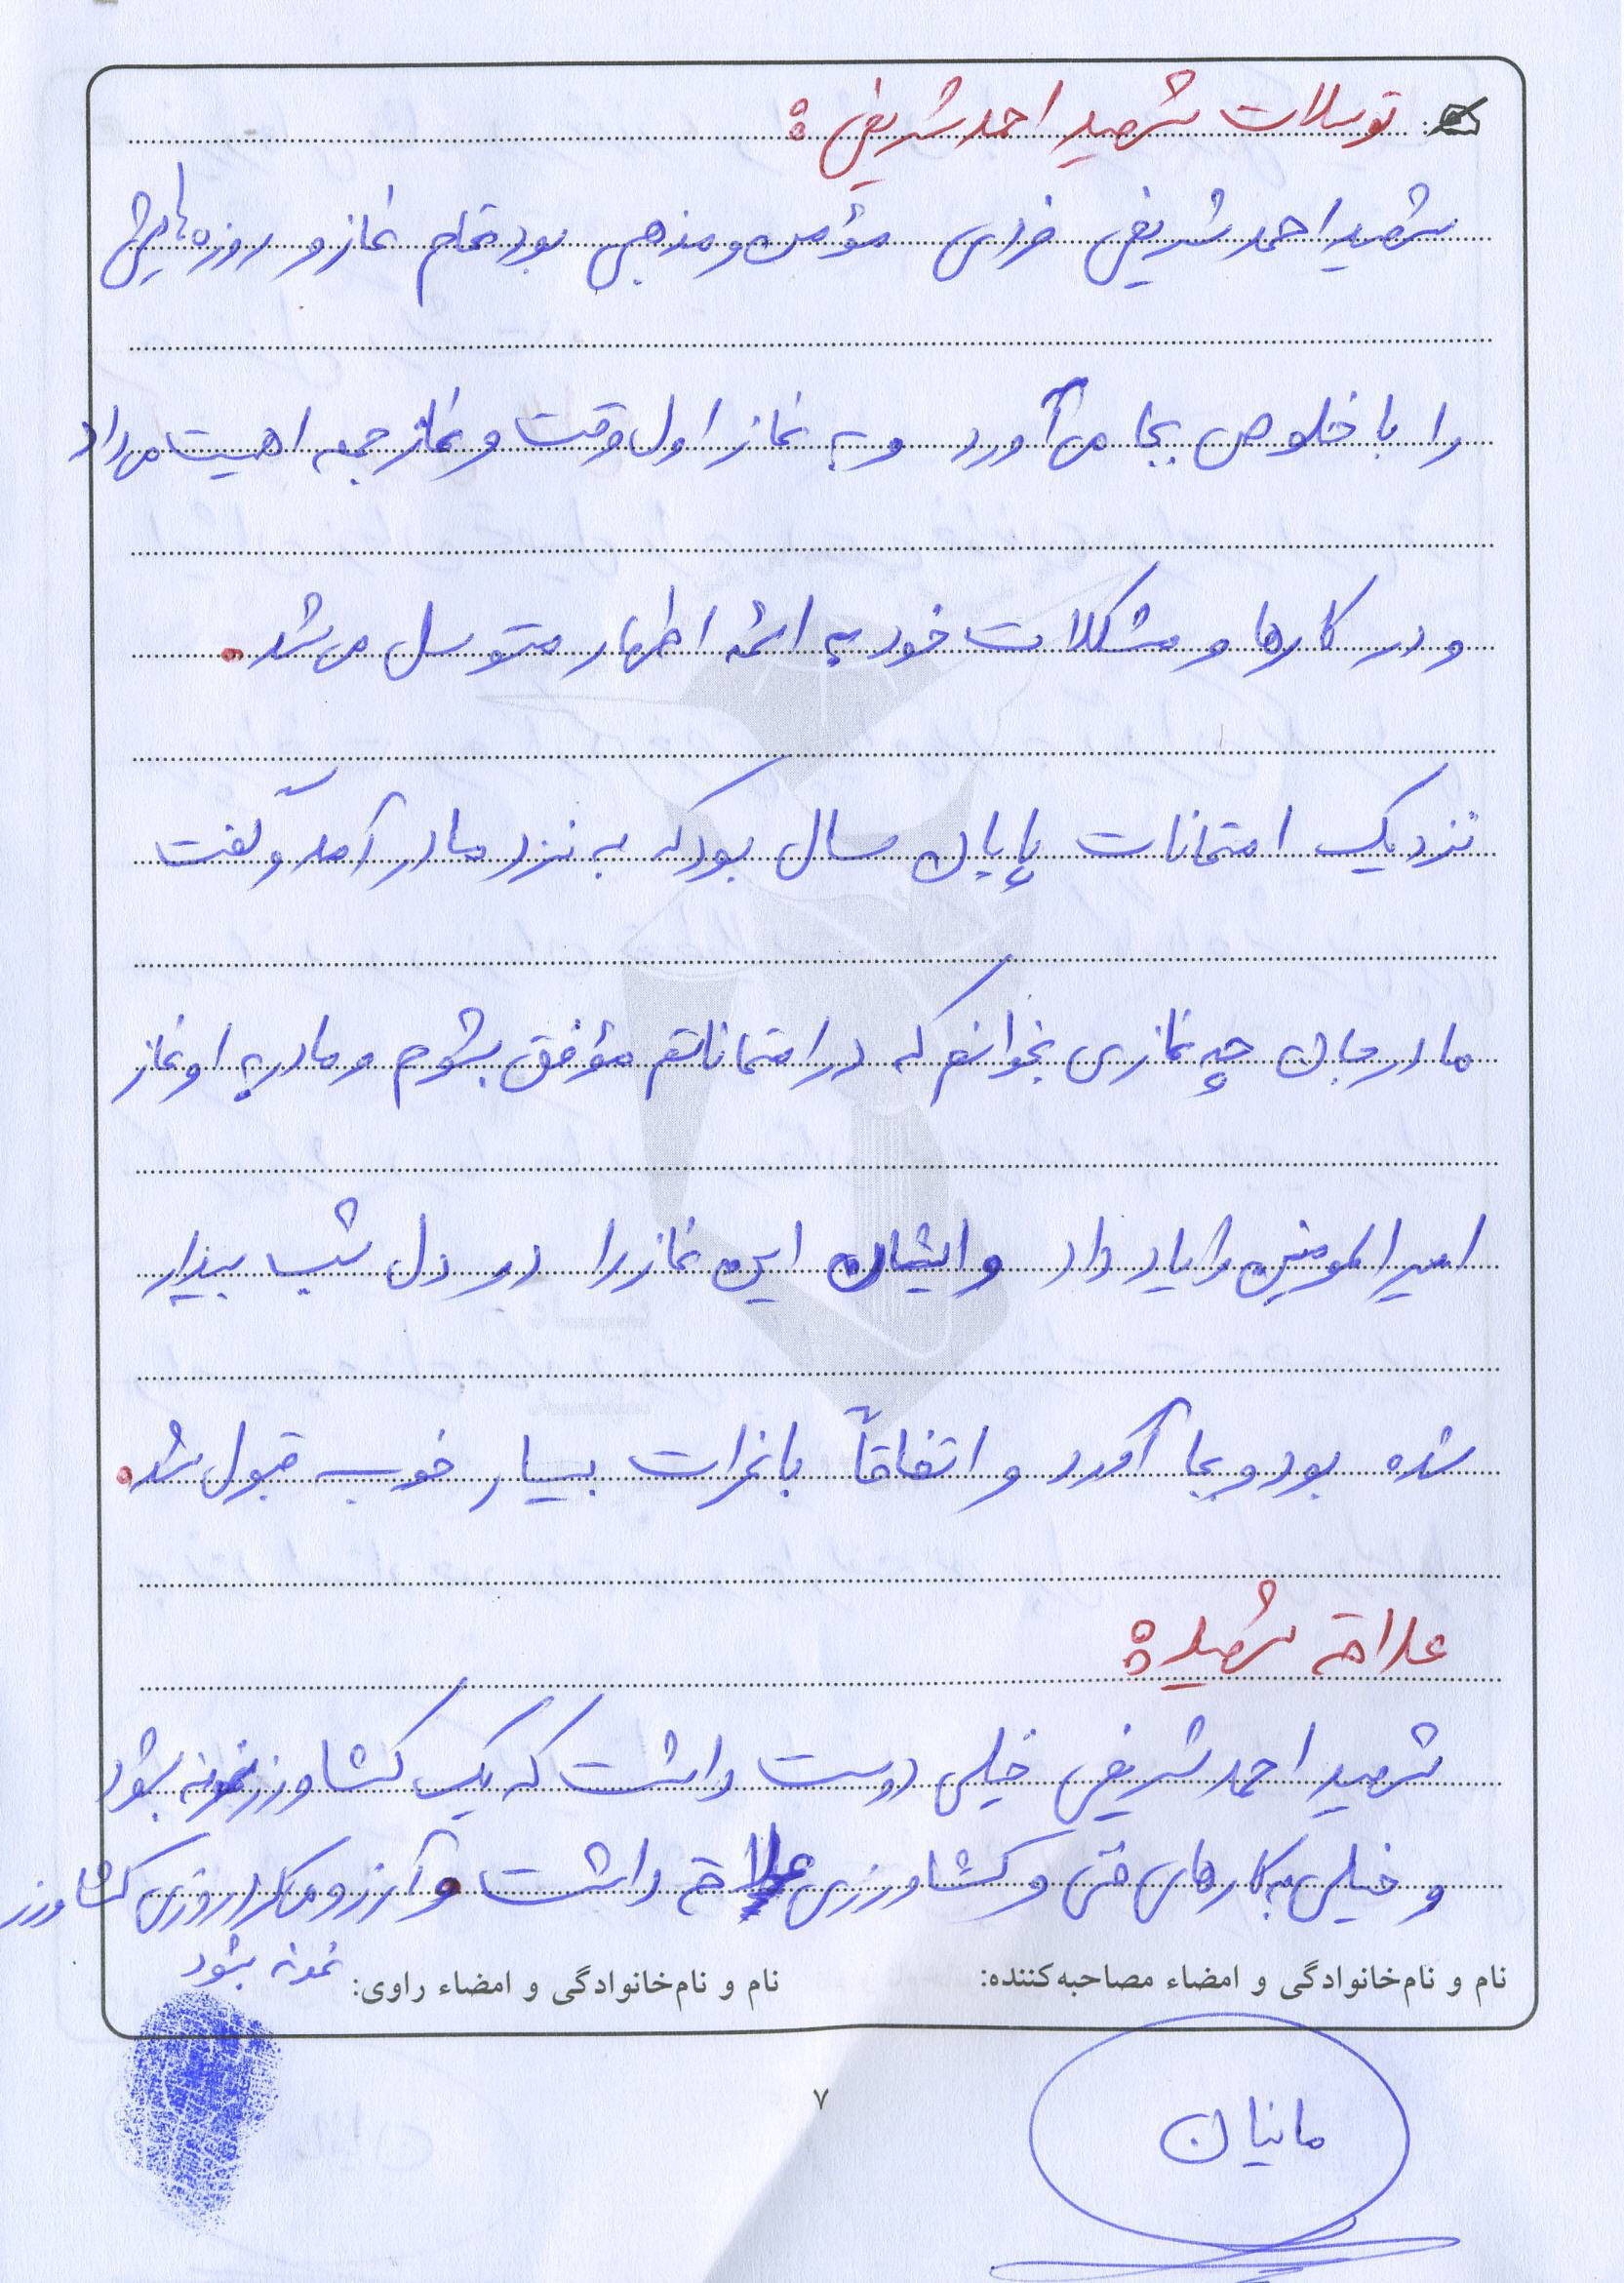 توسلات شهید احمد شریفی:
شهید احمد شریفی فردی مؤمن و مذهبی بود تمام نماز و روزه هایش
را با خلوص بجا می آورد و به نماز اول وقت و نماز جمعه اهمیت می داد
و در کارها و مشکلات خود به ائمه اطهار متوسل می شد.
نزدیک امتحانات پایان سال بود که به نزد مادر آمد و گفت
مادر جان چه نمازی بخوانم که در امتحاناتم مؤفق بشوم و مادر به او نماز
امیرالمومنین را یاد داد و ایشان این نماز را در دل شب بیدار
شده بود و بجا آورد و اتفاقاً با نمرات بسیار خوب قبول شد.
علاقه شهید:
شهید احمد شریفی خیلی دوست داشت که یک کشاورز نمونه بشود
و خیلی به کارهای فنی و کشاورزی علاقه داشت و آرزو میکرد روزی کشاورز
نمونه بشود
نام و نام‌خانوادگی و امضاء مصاحبه‌کننده:
نام و نام‌خانوادگی و امضاء راوی:
مانیان
۷